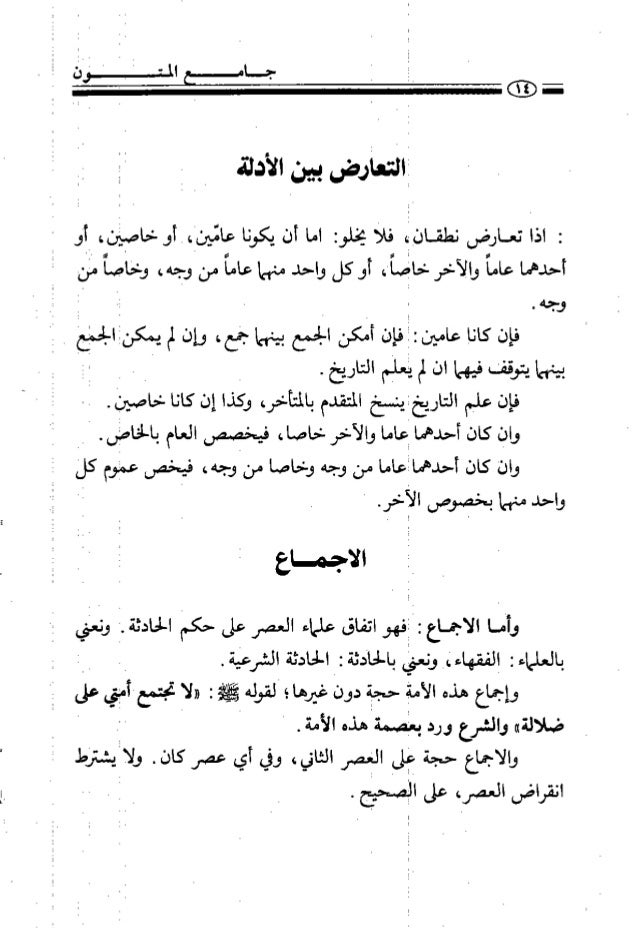 جامع المتون
١٤
التعارض بين الأدلة
: اذا تعارض نطقان، فلا يخلو: اما أن يكونا عامّين، أو خاصين، أو
أحدهما عاماً والآخر خاصاً، أو كل واحد منهما عاماً من وجه، وخاصاً من
وجه.
فإن كانا عامين: فإن أمكن الجمع بينهما جمع، وإن لم يمكن الجمع
بينهما يتوقف فيهما ان لم يعلم التاريخ.
فإن علم التاريخ ينسخ المتقدم بالمتأخر، وكذا إن كانا خاصين.
وان كان أحدهما عاما والآخر خاصا، فيخصص العام بالخاص.
وان كان أحدهما عاما من وجه وخاصا من وجه، فيخص عموم كل
واحد منهما بخصوص الآخر.
الاجماع
وأما الاجماع: فهو اتفاق علماء العصر على حكم الحادثة. ونعني
بالعلماء: الفقهاء، ونعني بالحادثة: الحادثة الشرعية.
وإجماع هذه الأمة حجة دون غيرها؛ لقوله ﷺ: «لا تجتمع أمتي على
ضلالة» والشرع ورد بعصمة هذه الأمة.
والاجماع حجة على العصر الثاني، وفي أي عصر كان. ولا يشترط
انقراض العصر، على الصحيح.